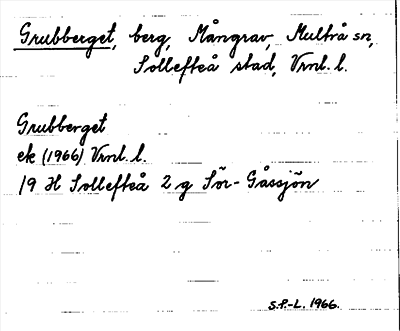 Grubberget, berg, Mångrav, Multrå sn,
Sollefteå stad, Vrnl. l.
Grubberget
ek (1966) Vrnl. l.
19 H Sollefteå 2 g Sör-Gåssjön
S.P.-L. 1966.